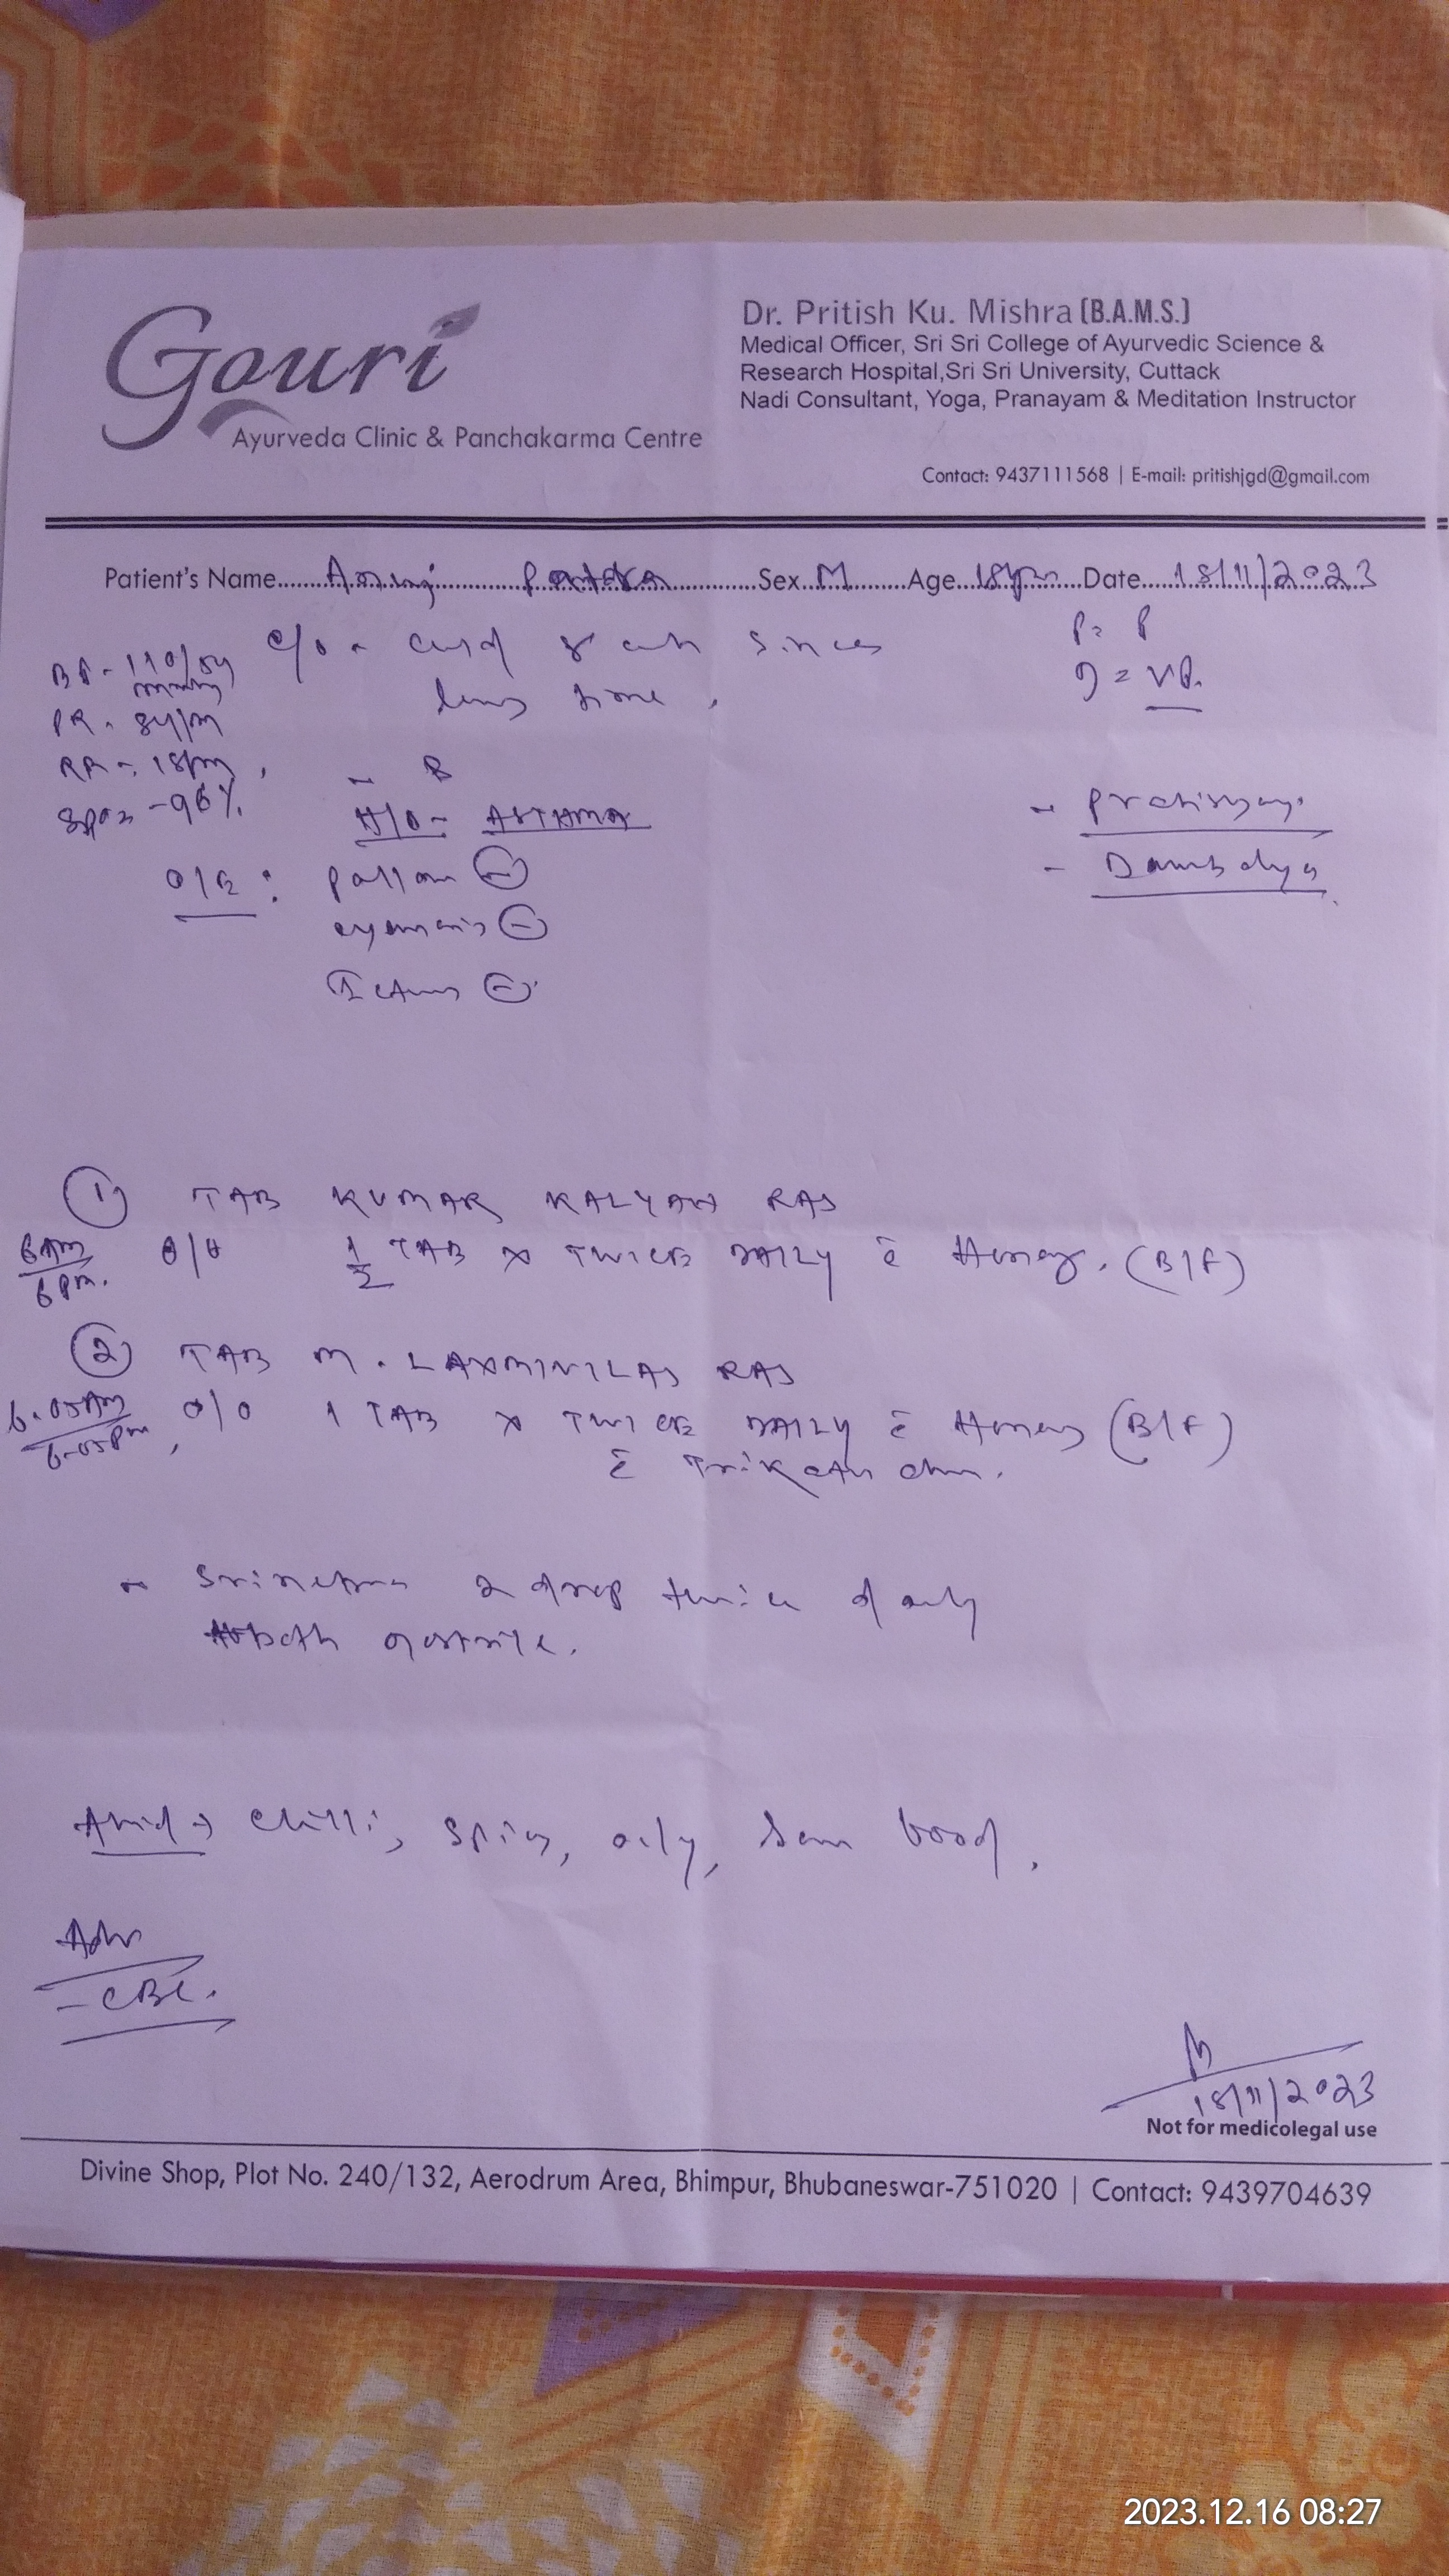 Gouri
Ayurveda Clinic & Panchakarma Centre
Dr. Pritish Ku. Mishra (B.A.M.S.)
Medical Officer, Sri Sri College of Ayurvedic Science &
Research Hospital,Sri Sri University, Cuttack
Nadi Consultant, Yoga, Pranayam & Meditation Instructor
Contact: 9437111568 | E-mail: pritishjgd@gmail.com
Patient's Name Sex M Age 18 Date 18/11/2023
c/o - cold since
long time,
P = P
BP - 110/
PR - 84/m
RR - 18/m,
SPO2 - 96%
H/O - ASTHMA
O/E : pallor -
cyanosis -
Icterus -
- Pratishyay
- Dourbalya
1) TAB KUMAR KALYAN RAS
6AM
6PM.
1/2 TAB x TWICE DAILY c̄ Honey. (B/F)
2) TAB M. LAXMIVILAS RAS
6.05AM
6.05PM,
1 TAB x TWICE DAILY c̄ Honey (B/F)
c̄ Trikatu
2 drop twice daily
both nostrile.
Avoid → chilli, spicy, oily, food.
Adv
- CBC.
18/11/2023
Not for medicolegal use
Divine Shop, Plot No. 240/132, Aerodrum Area, Bhimpur, Bhubaneswar-751020 | Contact: 9439704639
2023.12.16 08:27